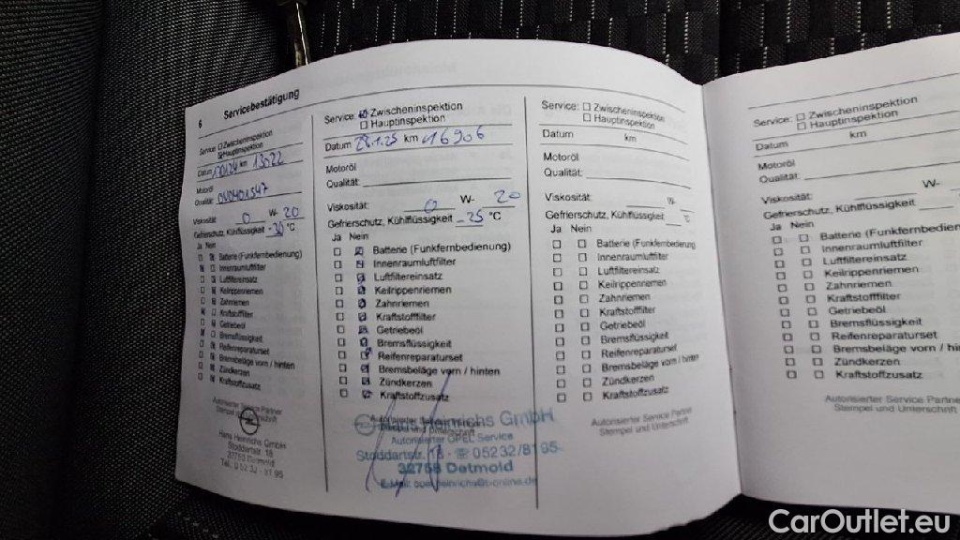 6 Servicebestätigung
Service: Zwischeninspektion
Hauptinspektion
Datum km 13022
Motoröl
Qualität:
Viskosität: 0 W- 20
Gefrierschutz, Kühlflüssigkeit -30 °C
Ja Nein
Batterie (Funkfernbedienung)
Innenraumluftfilter
Luftfiltereinsatz
Keilrippenriemen
Zahnriemen
Kraftstofffilter
Getriebeöl
Bremsflüssigkeit
Reifenreparaturset
Bremsbeläge vorn / hinten
Zündkerzen
Kraftstoffzusatz
Autorisierter Service Partner
Stempel und Unterschrift
Hans Heinrichs GmbH
Stoddartstr. 18
32758 Detmold
Service: Zwischeninspektion
Hauptinspektion
Datum 28.1.25 km 16906
Motoröl
Qualität:
Viskosität: 0 W- 20
Gefrierschutz, Kühlflüssigkeit -25 °C
Ja Nein
Batterie (Funkfernbedienung)
Innenraumluftfilter
Luftfiltereinsatz
Keilrippenriemen
Zahnriemen
Kraftstofffilter
Getriebeöl
Bremsflüssigkeit
Reifenreparaturset
Bremsbeläge vorn / hinten
Zündkerzen
Kraftstoffzusatz
Hans Heinrichs GmbH
Autorisierter OPEL Service
Stoddartstr. 18 · ☏ 05232/81 95
32758 Detmold
Service: Zwischeninspektion
Hauptinspektion
Datum km
Motoröl
Qualität:
Viskosität: W-
Gefrierschutz, Kühlflüssigkeit °C
Ja Nein
Batterie (Funkfernbedienung)
Innenraumluftfilter
Luftfiltereinsatz
Keilrippenriemen
Zahnriemen
Kraftstofffilter
Getriebeöl
Bremsflüssigkeit
Reifenreparaturset
Bremsbeläge vorn / hinten
Zündkerzen
Kraftstoffzusatz
Autorisierter Service Partner
Stempel und Unterschrift
Service: Zwischeninspektion
Hauptinspektion
Datum km
Motoröl
Qualität:
Viskosität: W-
Gefrierschutz, Kühlflüssigkeit
Ja Nein
Batterie (Funkfernbedien
Innenraumluftfilter
Luftfiltereinsatz
Keilrippenriemen
Zahnriemen
Kraftstofffilter
Getriebeöl
Bremsflüssigkeit
Reifenreparaturset
Bremsbeläge vorn / hinten
Zündkerzen
Kraftstoffzusatz
Autorisierter Service Partner
Stempel und Unterschrift
CarOutlet.eu